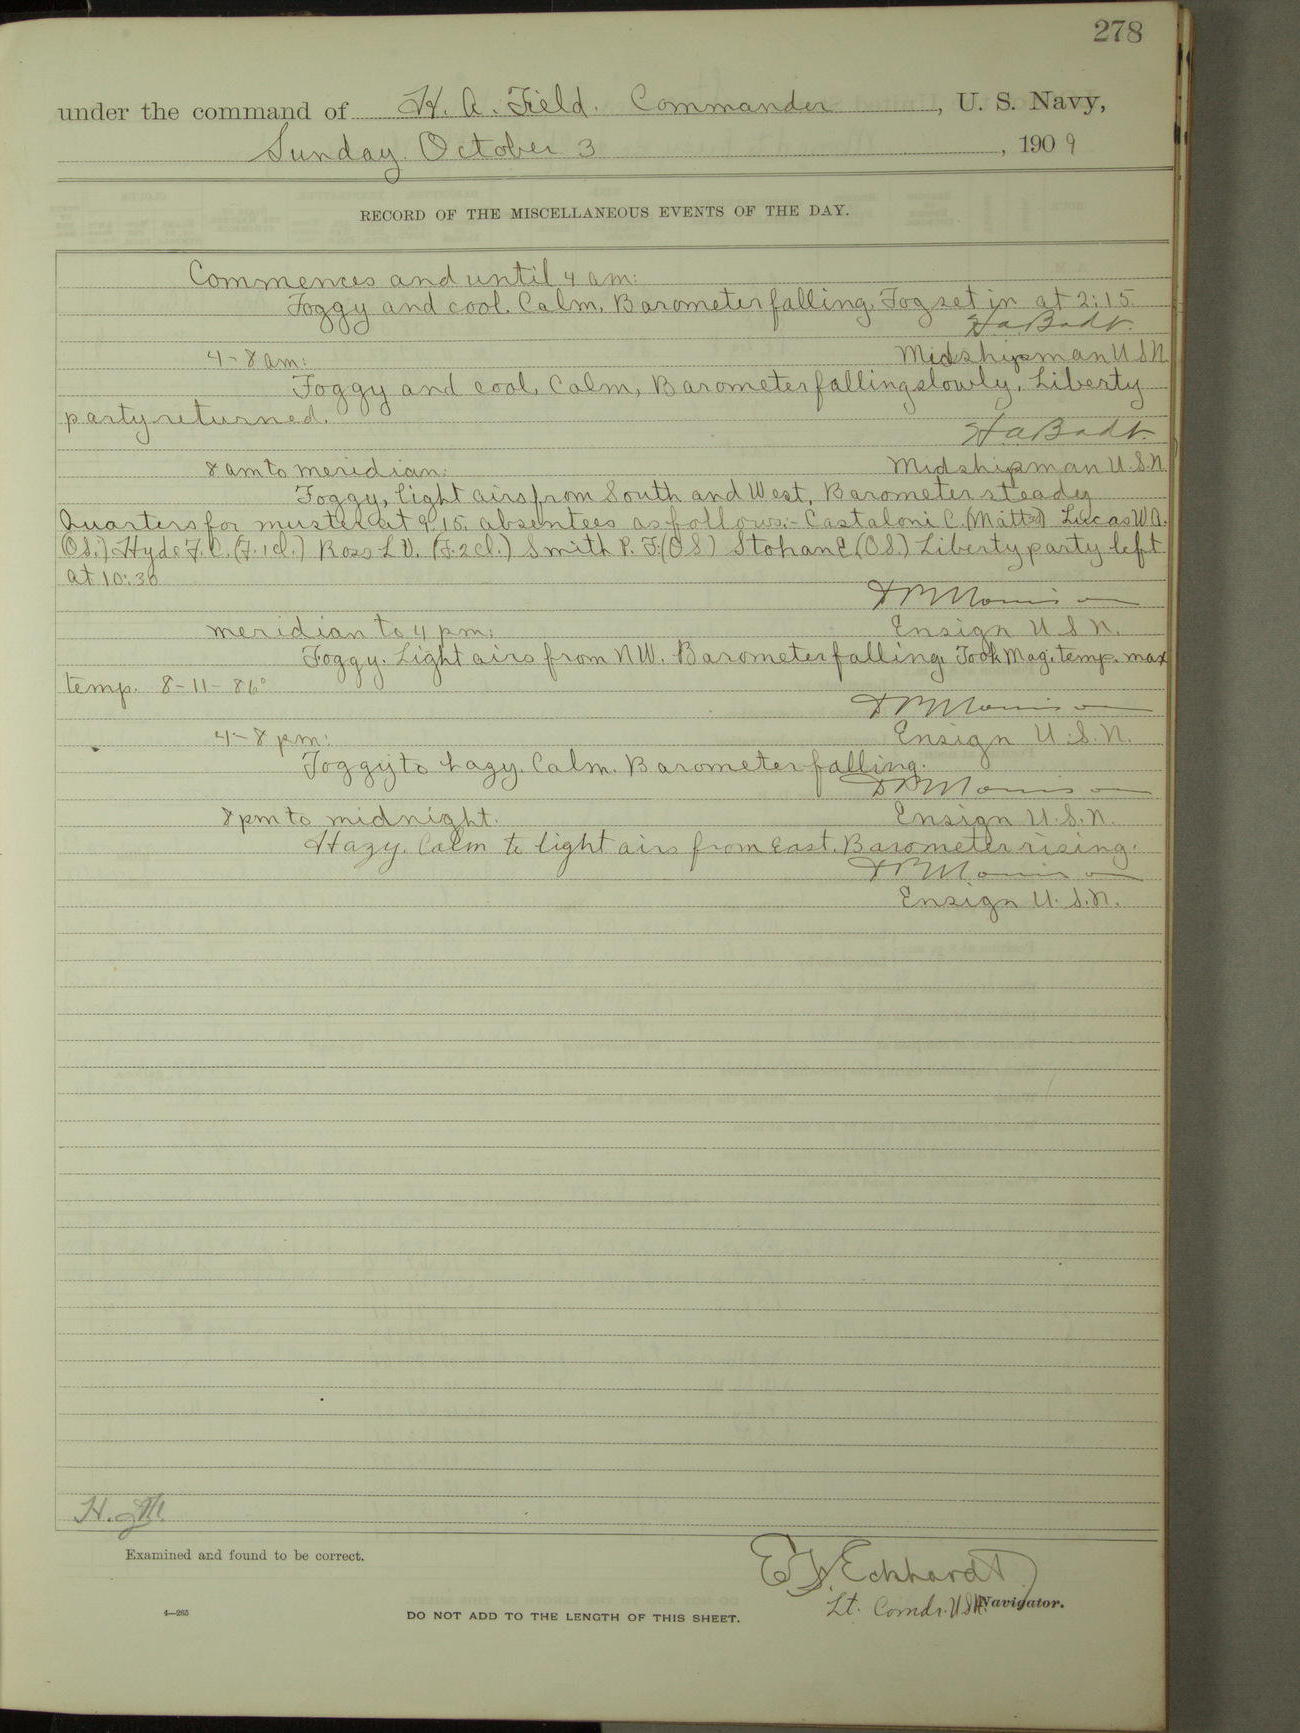 278
under the command of H. A. Field. Commander, U. S. Navy,
Sunday. October 3, 1909
RECORD OF THE MISCELLANEOUS EVENTS OF THE DAY.
Commences and until 4 am:
Foggy and cool. Calm. Barometer falling. Fog set in at 2:15.
H. A. Badt.
4-8 am: Midshipman U S N
Foggy and cool, Calm, Barometer falling slowly. Liberty
party returned.
H. A. Badt.
8 am to meridian: Midshipman U.S.N.
Foggy, light airs from South and West, Barometer steady
Quarters for muster at 9.15. absentees as follows:- Castaloni C. (Matt 3d) Lucas W A.
(O S.) Hyde F. C. (F. 1 cl.) Ross L V. (F. 2 cl.) Smith P. F. (O S) Stohan E (O S.) Liberty party left
at 10:30
Ensign U S N.
meridian to 4 pm:
Foggy. Light airs from N W. Barometer falling. Took Mag. temp. max
temp. 8-11- 86°
4-8 pm: Ensign U.S.N.
Foggy to hazy. Calm. Barometer falling.
8 pm to midnight. Ensign U.S.N.
Hazy. Calm to light airs from East. Barometer rising.
Ensign U.S.N.
Examined and found to be correct.
E. Eckhardt
Lt. Comdr. U S N. Navigator.
4—265
DO NOT ADD TO THE LENGTH OF THIS SHEET.